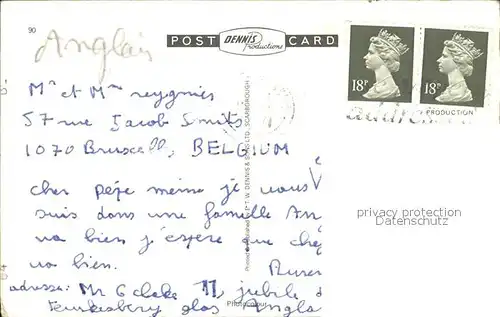 90
Anglais
POST DENNIS Productions CARD
18P 18P
PRODUCTION
Mr et Mme reygnies
57 rue Jacob Smits
1070 Bruxell, BELGIUM
cher pépé meme je vous
suis dans une famille An
va bien j'espere que chez
va bien.
adresse: Mr G clake 11, jubile
Teukesbery glos Angla
Printed & Published by E.T.W. DENNIS & SONS LTD., SCARBOROUGH
Photocolour
privacy protection
Datenschutz